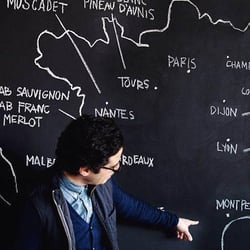 MUSCADET
PINEAU D'AUNIS
PARIS
CHAM
TOURS
AB SAUVIGNON
AB FRANC
MERLOT
NANTES
CO
DIJON
LYON
MALB
RDEAUX
MONTPE